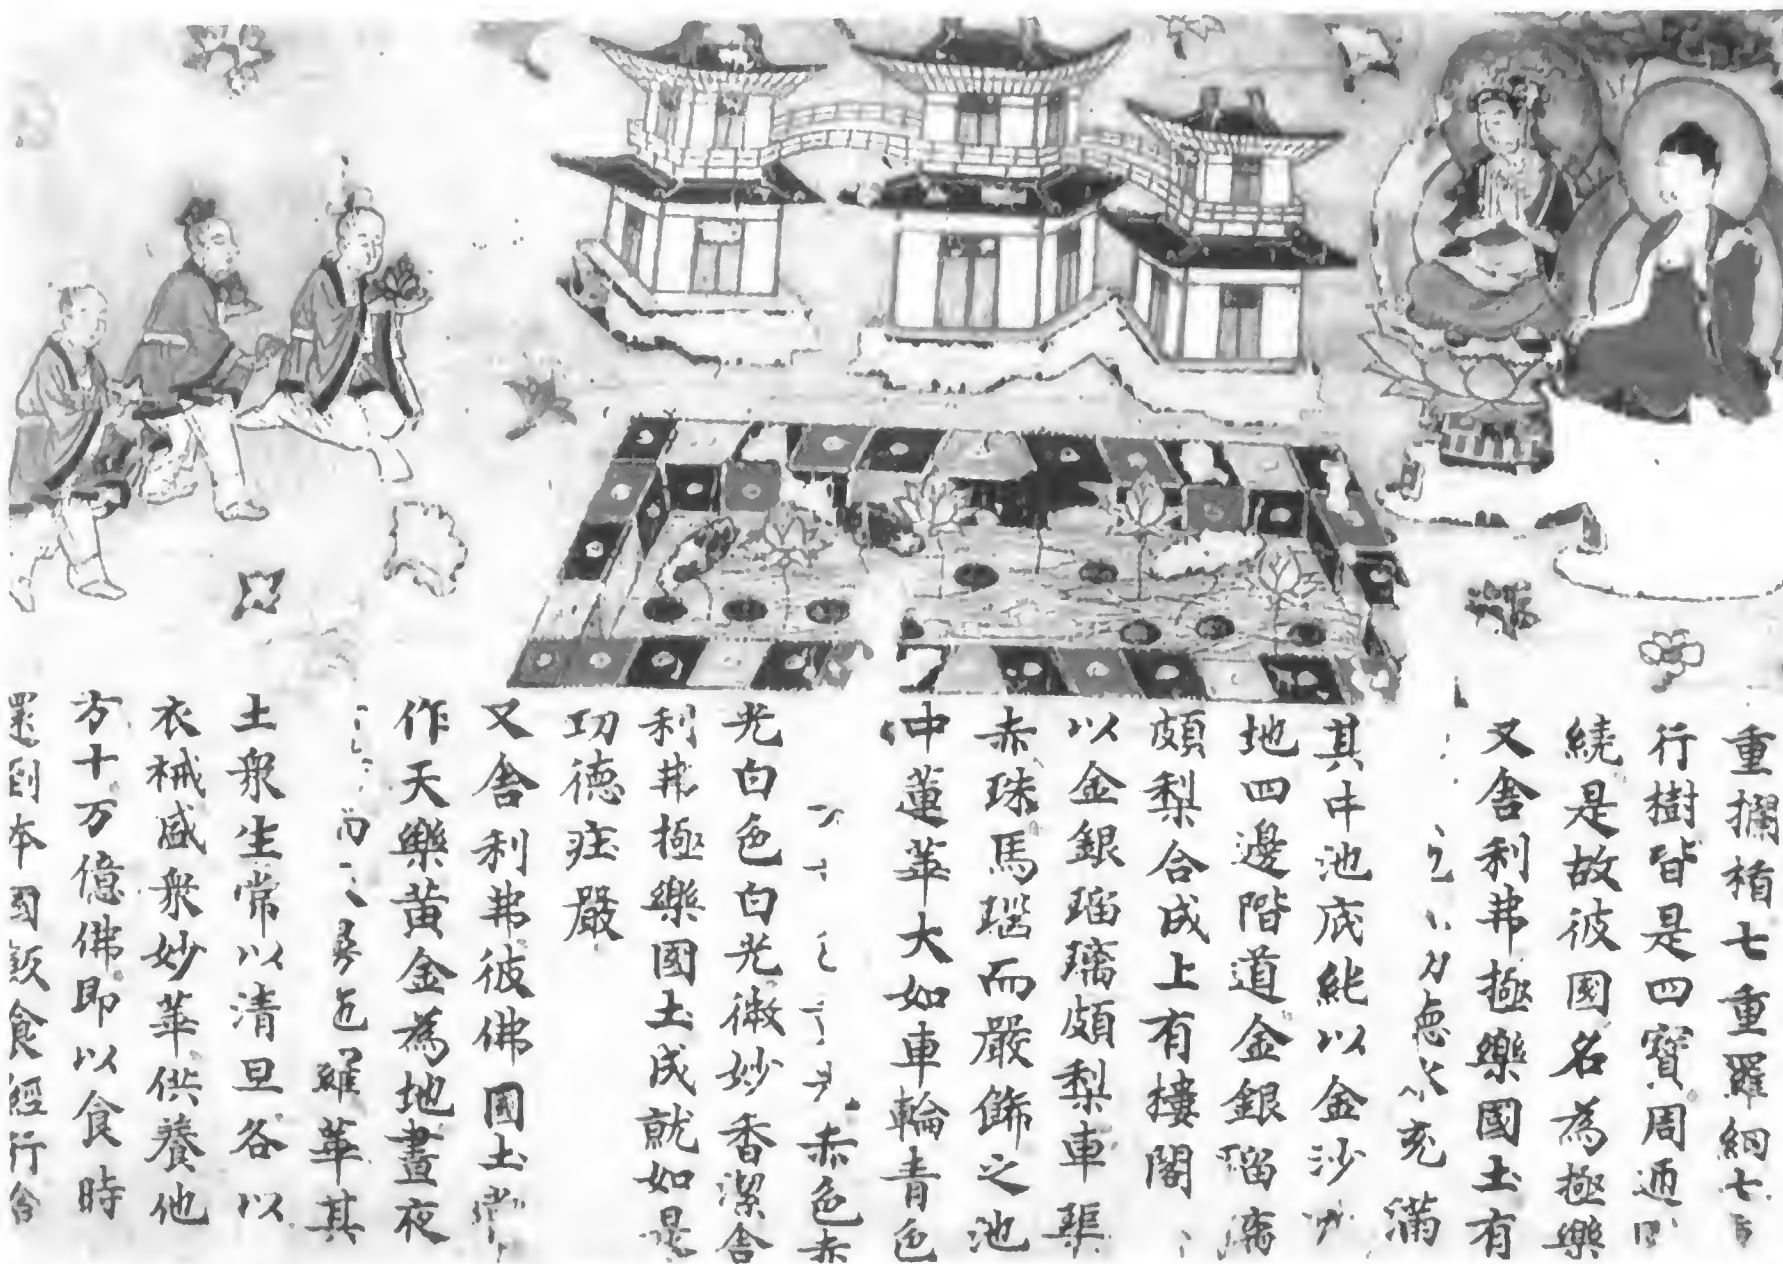 重攔楯七重羅網七
行樹皆是四寶周迊
繞是故彼國名為極樂
又舍利弗極樂國土有
德水充滿
其中池底純以金沙
地四邊階道金銀瑠璃
頗梨合成上有樓閣
以金銀瑠璃頗梨車渠
赤珠馬瑙而嚴飾之池
中蓮華大如車輪青色
赤色赤
光白色白光微妙香潔舍
利弗極樂國土成就如是
功德莊嚴
又舍利弗彼佛國土常
作天樂黃金為地晝夜
羅華其
土眾生常以清旦各以
衣裓盛眾妙華供養他
方十万億佛即以食時
還到本國飯食經行舍